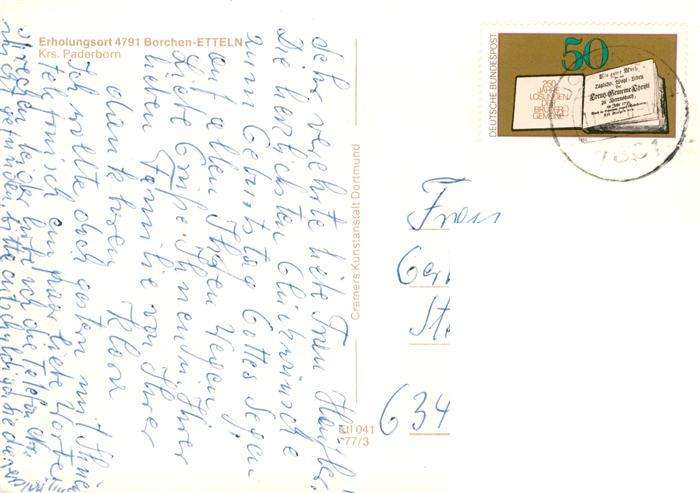 Erholungsort 4791 Borchen-ETTELN
Krs. Paderborn
Sehr verehrte liebe Frau
Die herzlichsten Glückwünsche
zum Geburtstag Gottes Segen
auf allen Ihren Wegen
Liebe Grüße Ihnen u. Ihrer
lieben Familie von Ihrer
dankbaren
Ich wollte doch gestern mit Ihnen
telefonisch ein paar liebe Worte
sprechen leider hatte ich die Telefon Nr.
nicht gefunden, bitte entschuldigen
Cramers Kunstanstalt Dortmund
Ett 041
77/3
DEUTSCHE BUNDESPOST
50
250
JAHRE
LOSUNGEN
DER
BRÜDER-
GEMEINE
Frau
Ger
St
634